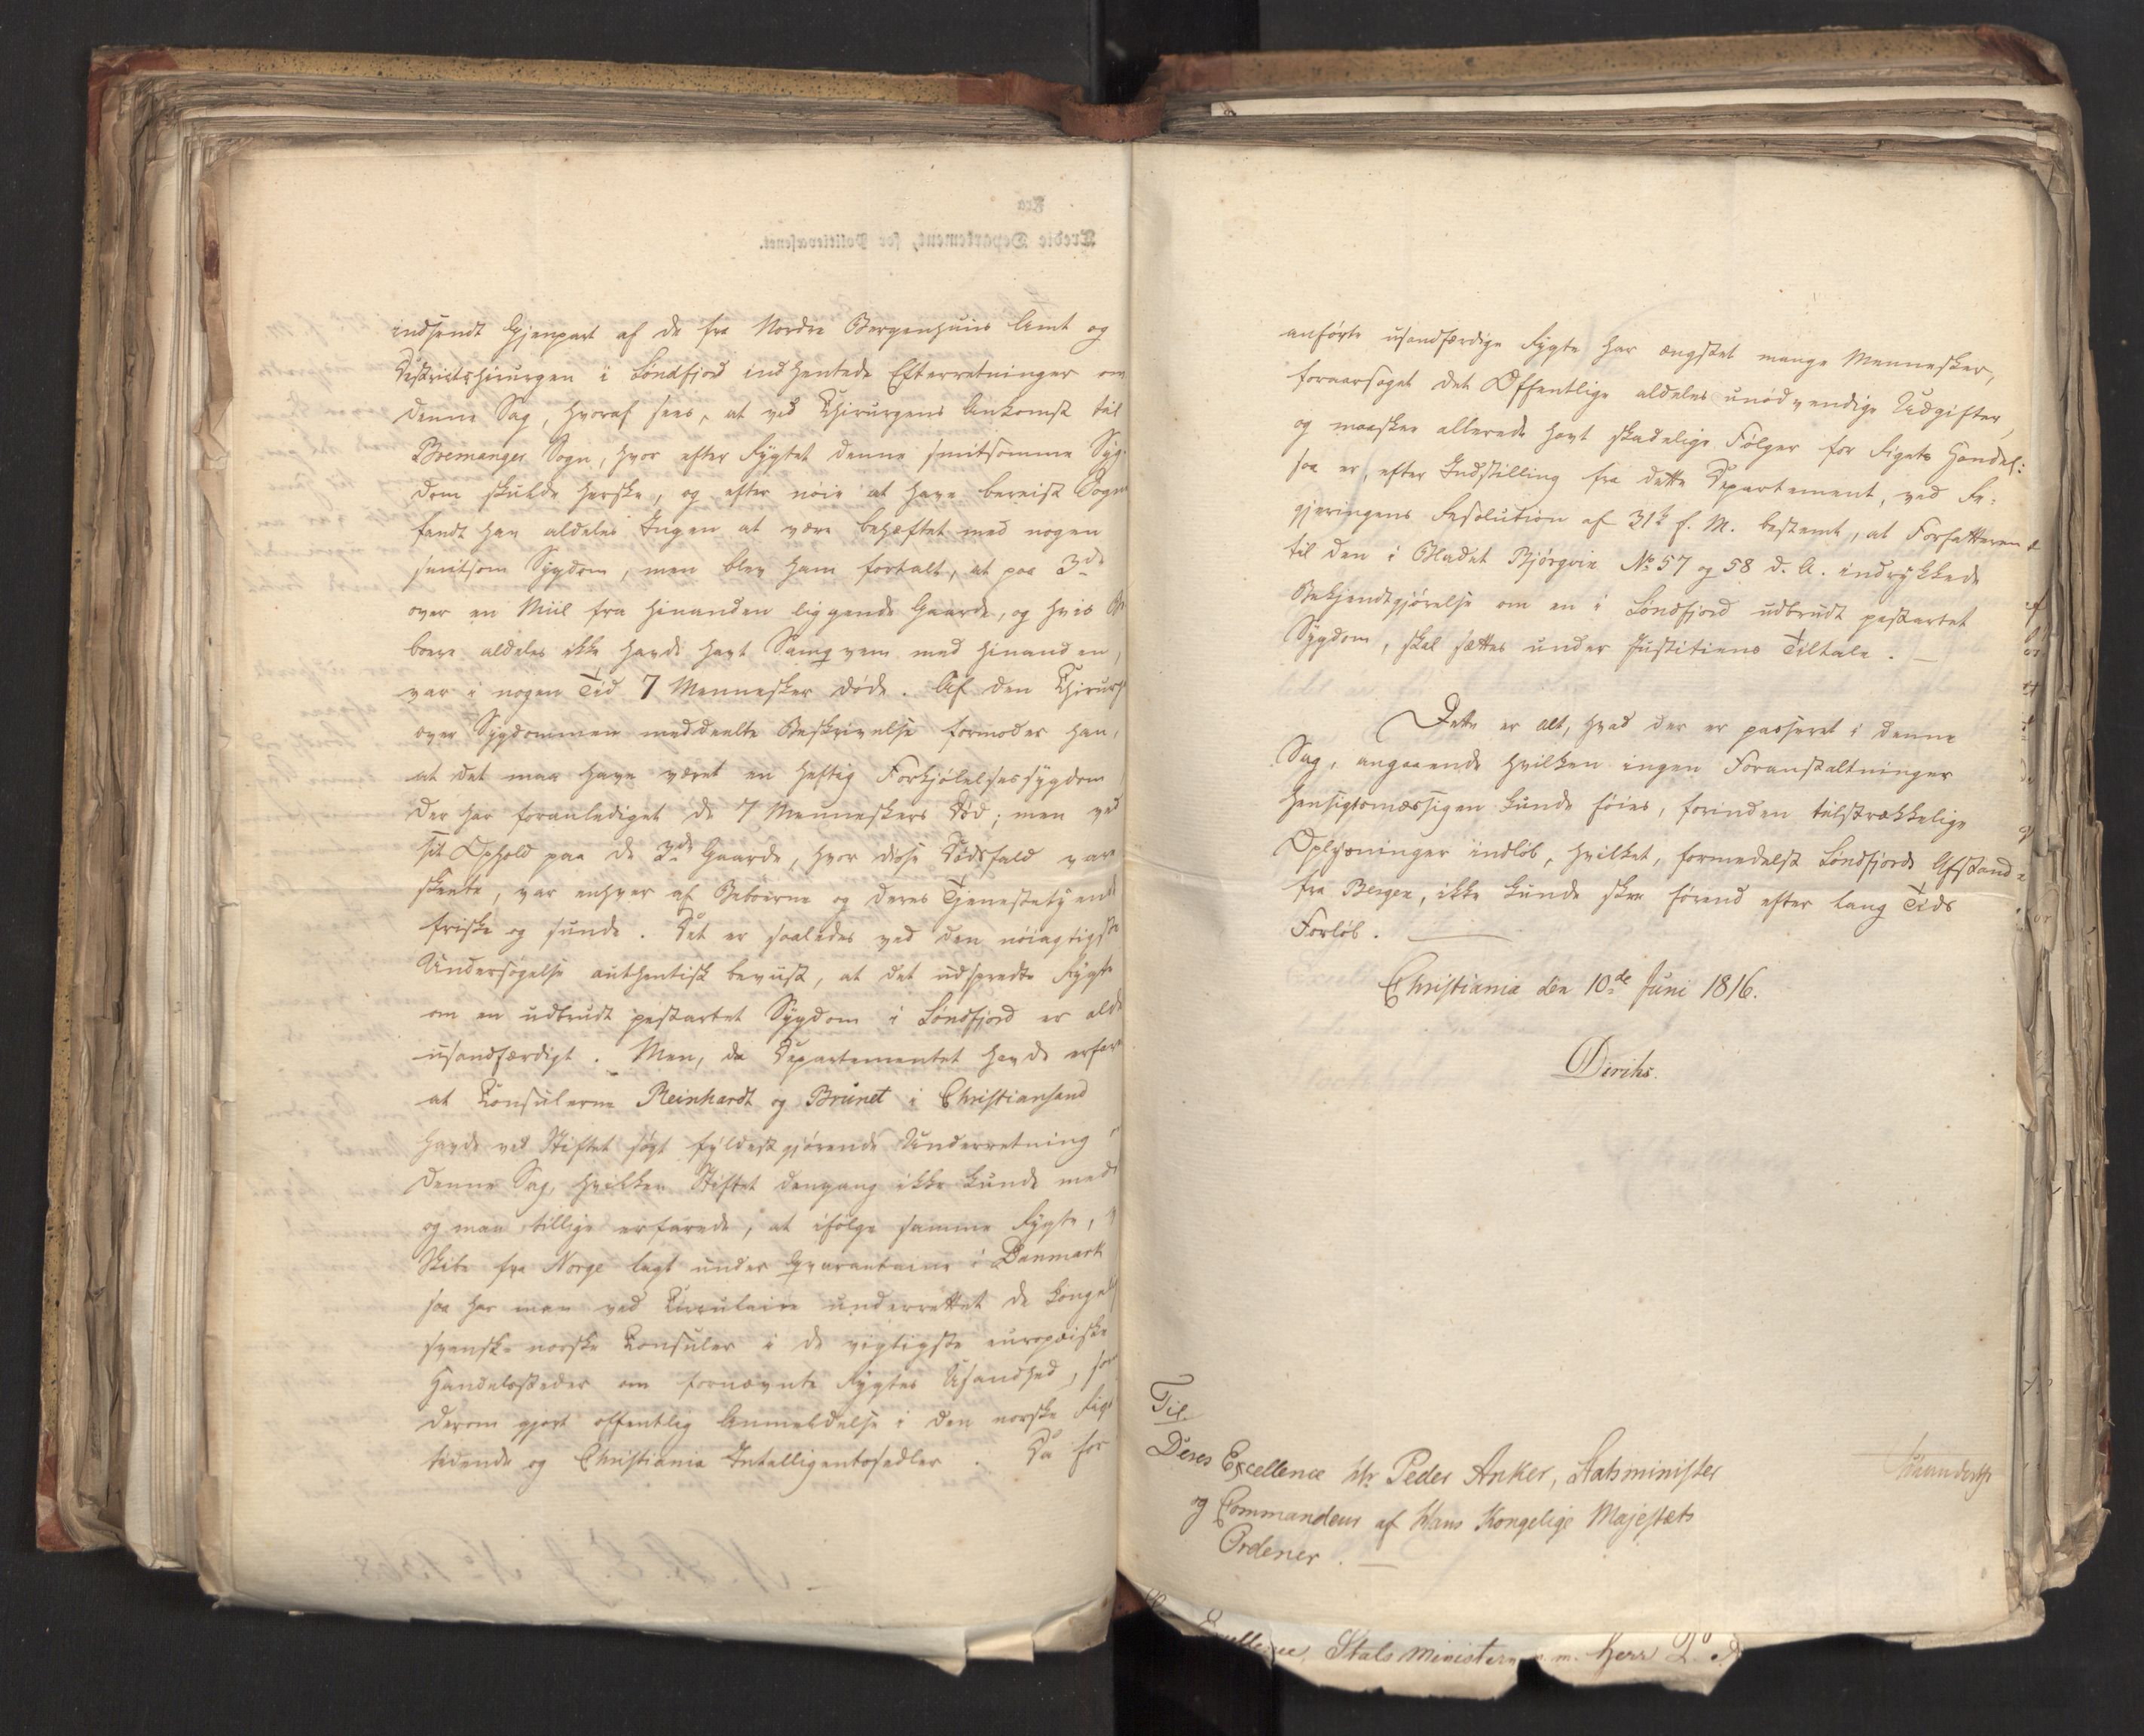 indsendt Gjenpart af de fra Nordre Bergenhuus Amt og
Districtschirurgen i Søndfjord indhentede Efterretninger om
denne Sag, hvoraf sees, at ved Chirurgens Ankomst til
Bremanger Sogn, hvor efter Rygtet denne smitsomme Syg-
dom skulde herske, og efter nøie at have bereist Sogn
fandt han aldeles Ingen at være behæftet med nogen
smitsom Sygdom, men blev ham fortalt, at paa 3de
over en Miil fra hinanden liggende Gaarde, og hvis Be
boere aldeles ikke havde havt Samqvem med hinanden,
var i nogen Tid 7 Mennesker døde. Af den Chirurg
over Sygdommen meddeelte Beskrivelse formoder han,
at det maa have været en heftig Forkjølelsessygdom
der har foranlediget de 7 Menneskers Død; men ved
sit Ophold paa de 3de Gaarde, hvor disse Dødsfald vare
skeete, var enhver af Beboerne og deres Tjenestetyende
friske og sunde. Det er saaledes ved den nøiagtigste
Undersøgelse authentisk beviist, at det udspredte Rygte
om en udbrudt pestartet Sygdom i Søndfjord er alde
usandfærdigt. Men, da Departementet havde erfar
at Consulerne Reinhardt og Brunet i Christiansand
havde ved Stiftet søgt fyldestgjørende Underretning
denne Sag, hvilken Stiftet dengang ikke kunde med
og man tillige erfarede, at ifølge samme Rygte,
Skibe fra Norge lagt under Qvarantaine i Danmark
saa har man ved Circulaire underrettet de Kongel
svensk-norske Consuler i de vigtigste europæiske
Handelsstæder om fornævnte Rygtes Usandhed,
derom gjort offentlig Anmeldelse i den norske Rigs
tidende og Christiania Intelligentssedler. Da for
anførte usandfærdige Rygte har ængstet mange Mennesker,
foraarsaget det Offentlige aldeles unødvendige Udgifter,
og maaskee allerede havt skadelige Følger for Rigets Handel:
saa er, efter Indstilling fra dette Departement, ved Re-
gjeringens Resolution af 31te f. M. bestemt, at Forfatteren
til den i Bladet Bjørgvin No 57 og 58 d. A. indrykkede
Bekjendtgjørelse om en i Søndfjord udbrudt pestartet
Sygdom, skal sættes under Justitiens Tiltale.
Dette er alt, hvad der er passeret i denne
Sag, angaaende hvilken ingen Foranstaltninger
hensigtsmæssigen kunde føies, forinden tilstrækkelige
Oplysninger indløb, hvilket, formedelst Søndfjords Afstand
fra Bergen, ikke kunde skee førend efter lang Tids
Forløb.
Christiania den 10de Juni 1816.
Diriks.
Til
Deres Excellence Hr. Peder Anker, Statsminister
og Commandeur af Hans Kongelige Majestæts
Ordener.
Stats Ministern m. m. Herr P.